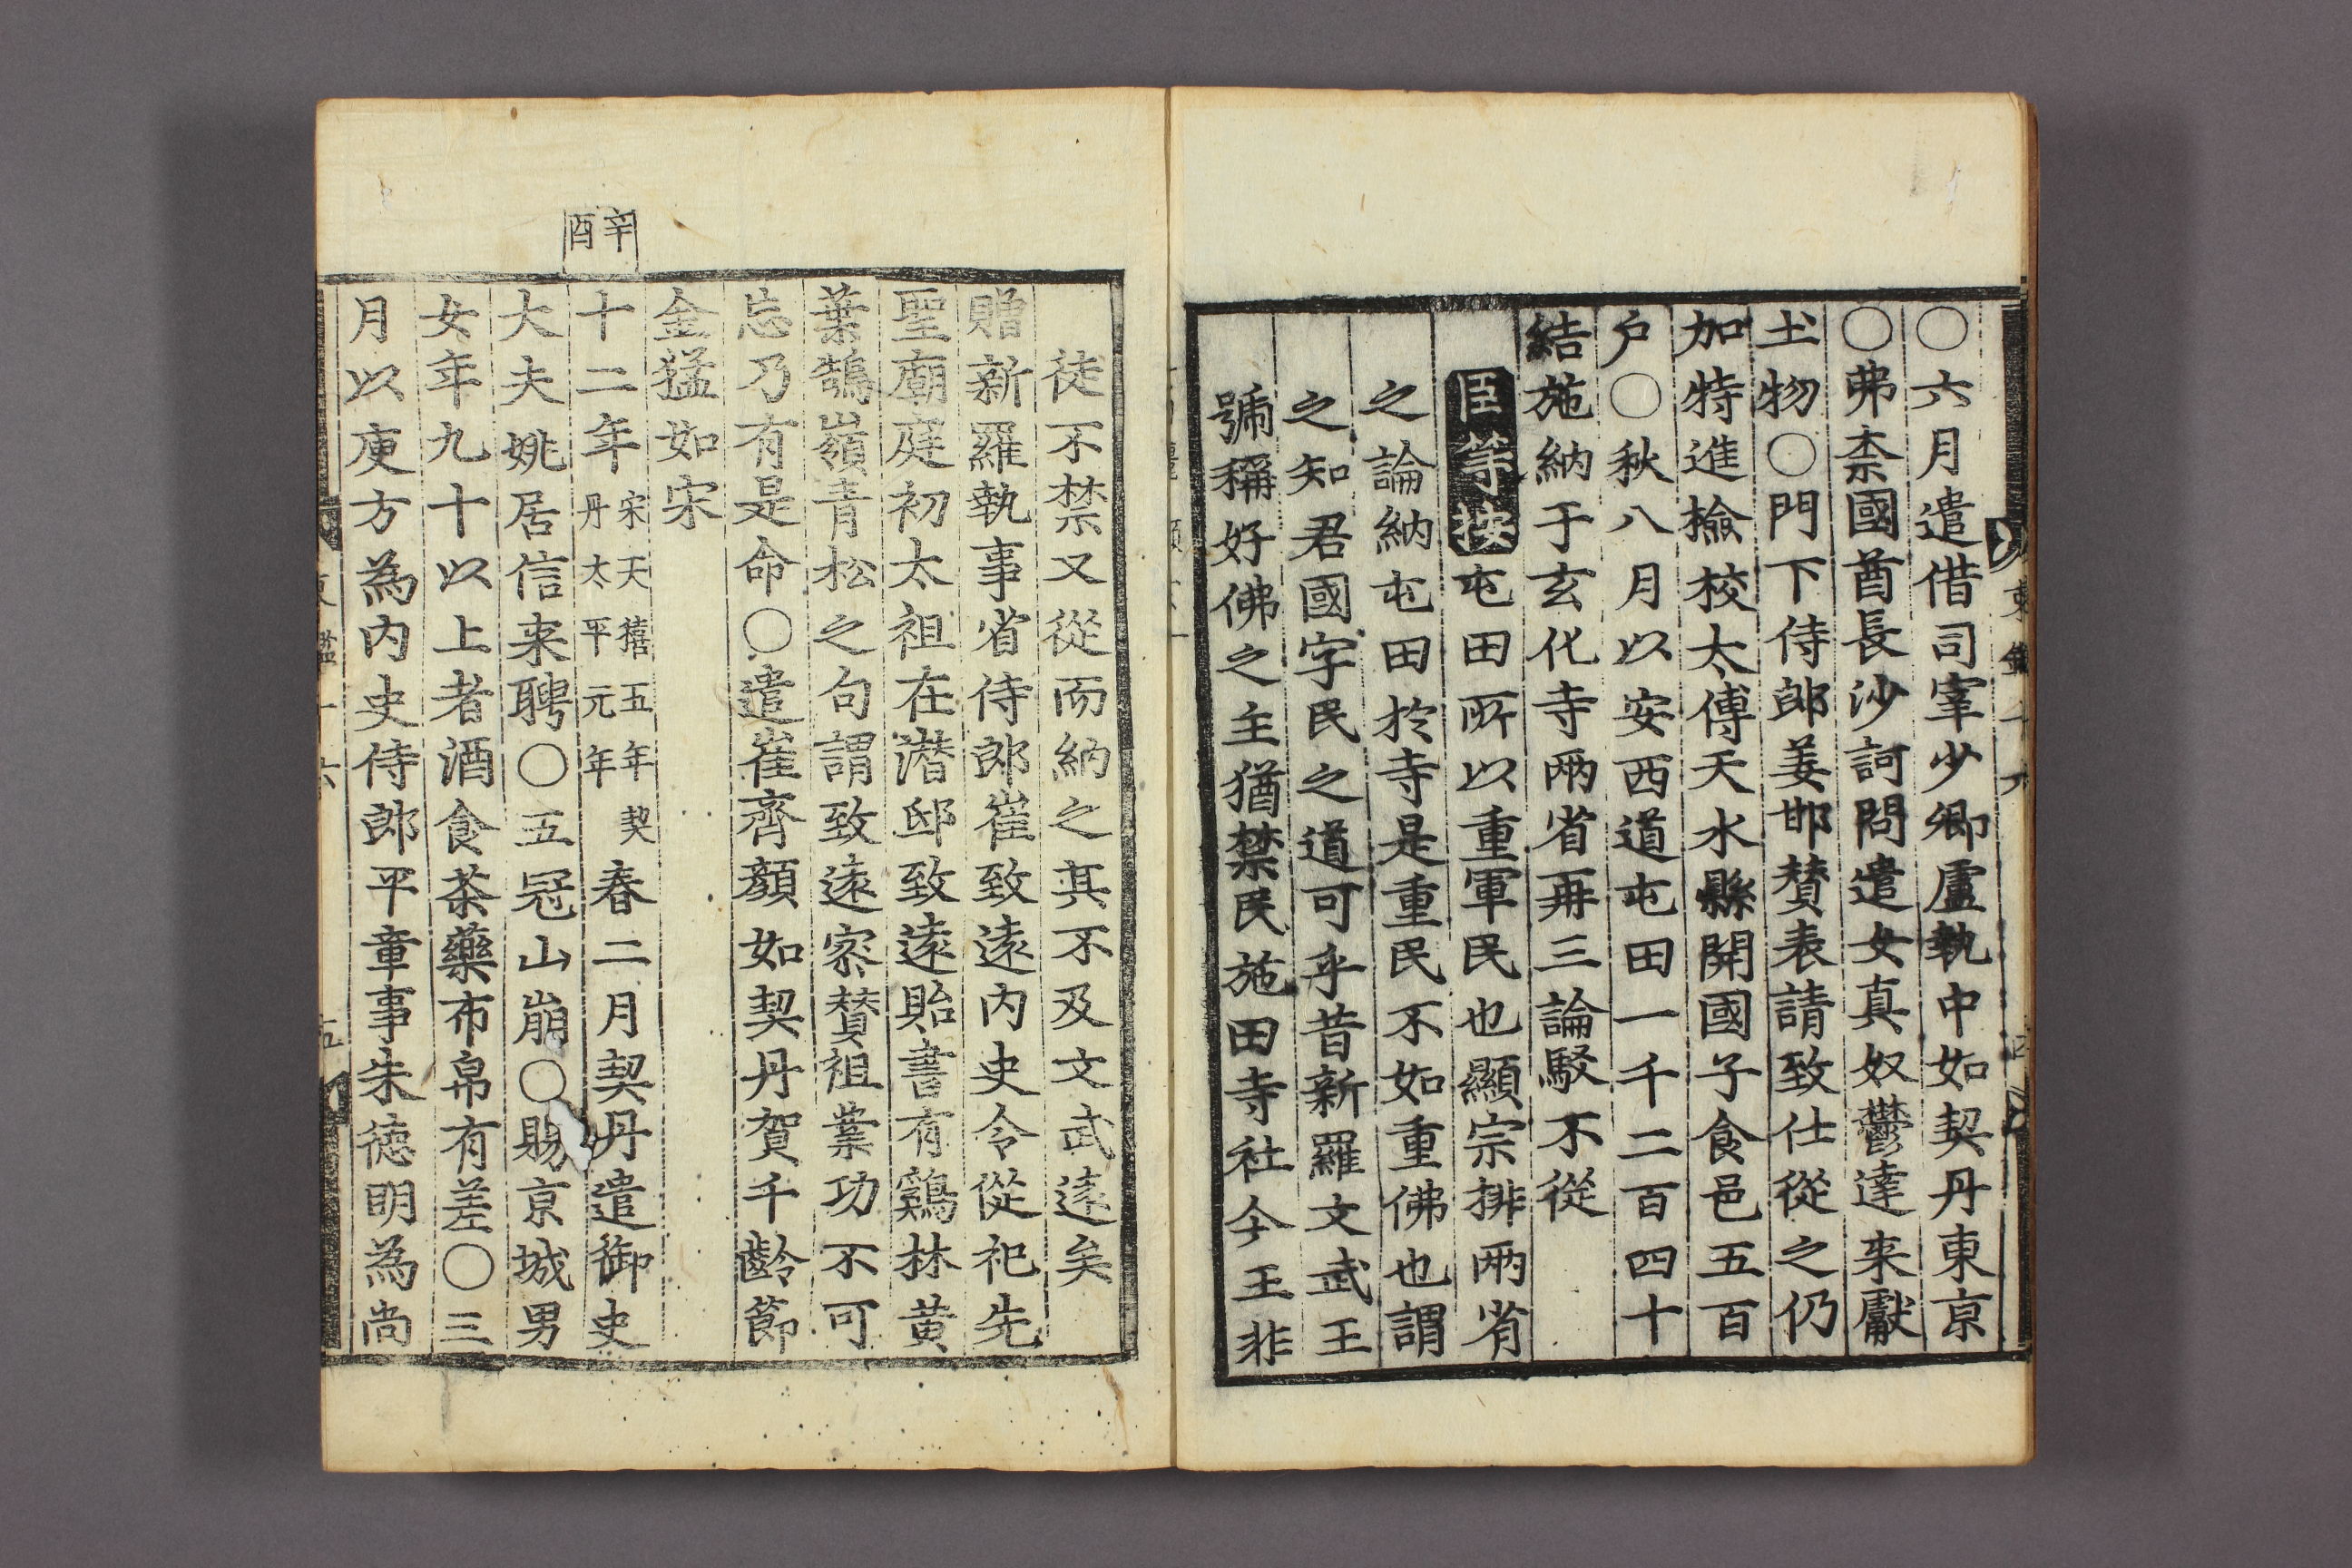 ○六月遣借司宰少卿盧執中如契丹東亰
○弗柰國酋長沙訶問遣女真奴鬱達来獻
土物○門下侍郎姜邯賛表請致仕從之仍
加特進撿校太傅天水縣開國子食邑五百
户○秋八月以安西道屯田一千二百四十
結施納于玄化寺兩省再三論駁不從
臣等按屯田所以重軍民也顯宗排兩省
之論納屯田於寺是重民不如重佛也謂
之知君國字民之道可乎昔新羅文武王
號稱好佛之主猶禁民施田寺社今王非
徒不禁又從而納之其不及文武遠矣
贈新羅執事省侍郎崔致遠内史令從祀先
聖廟庭初太祖在潜邸致遠貽書有鷄林黄
葉鵠嶺青松之句謂致遠宻賛祖業功不可
忘乃有是命○遣崔齊顔如契丹賀千齡節
金猛如宋
辛酉
十二年宋天禧五年契丹太平元年春二月契丹遣御史
大夫姚居信来聘○五冠山崩○賜京城男
女年九十以上者酒食茶藥布帛有差○三
月以庾方為内史侍郎平章事朱德明為尚